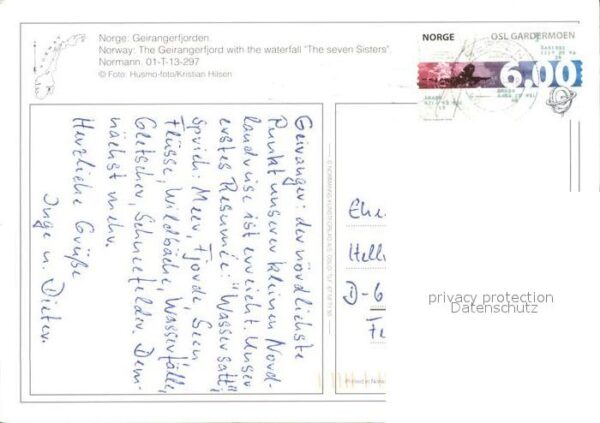 Norge: Geirangerfjorden.
Norway: The Geirangerfjord with the waterfall "The seven Sisters"
Normann. 01-T-13-297
© Foto: Husmo-foto/Kristian Hilsen
NORGE OSL GARDERMOEN
6,00
Geiranger: der nördlichste
Punkt unserer kleinen Nord-
landreise ist erreicht. Unser
erstes Resumée: "Wasser satt",
sprich: Meer, Fjorde, Seen
Flüsse, Wildbäche, Wasserfälle,
Gletscher, Schneefelder. Dem-
nächst mehr.
Herzliche Grüße
Inge u. Dieter.
Ehe
Hell
D-6
Fe
privacy protection
Datenschutz
Printed in Norway